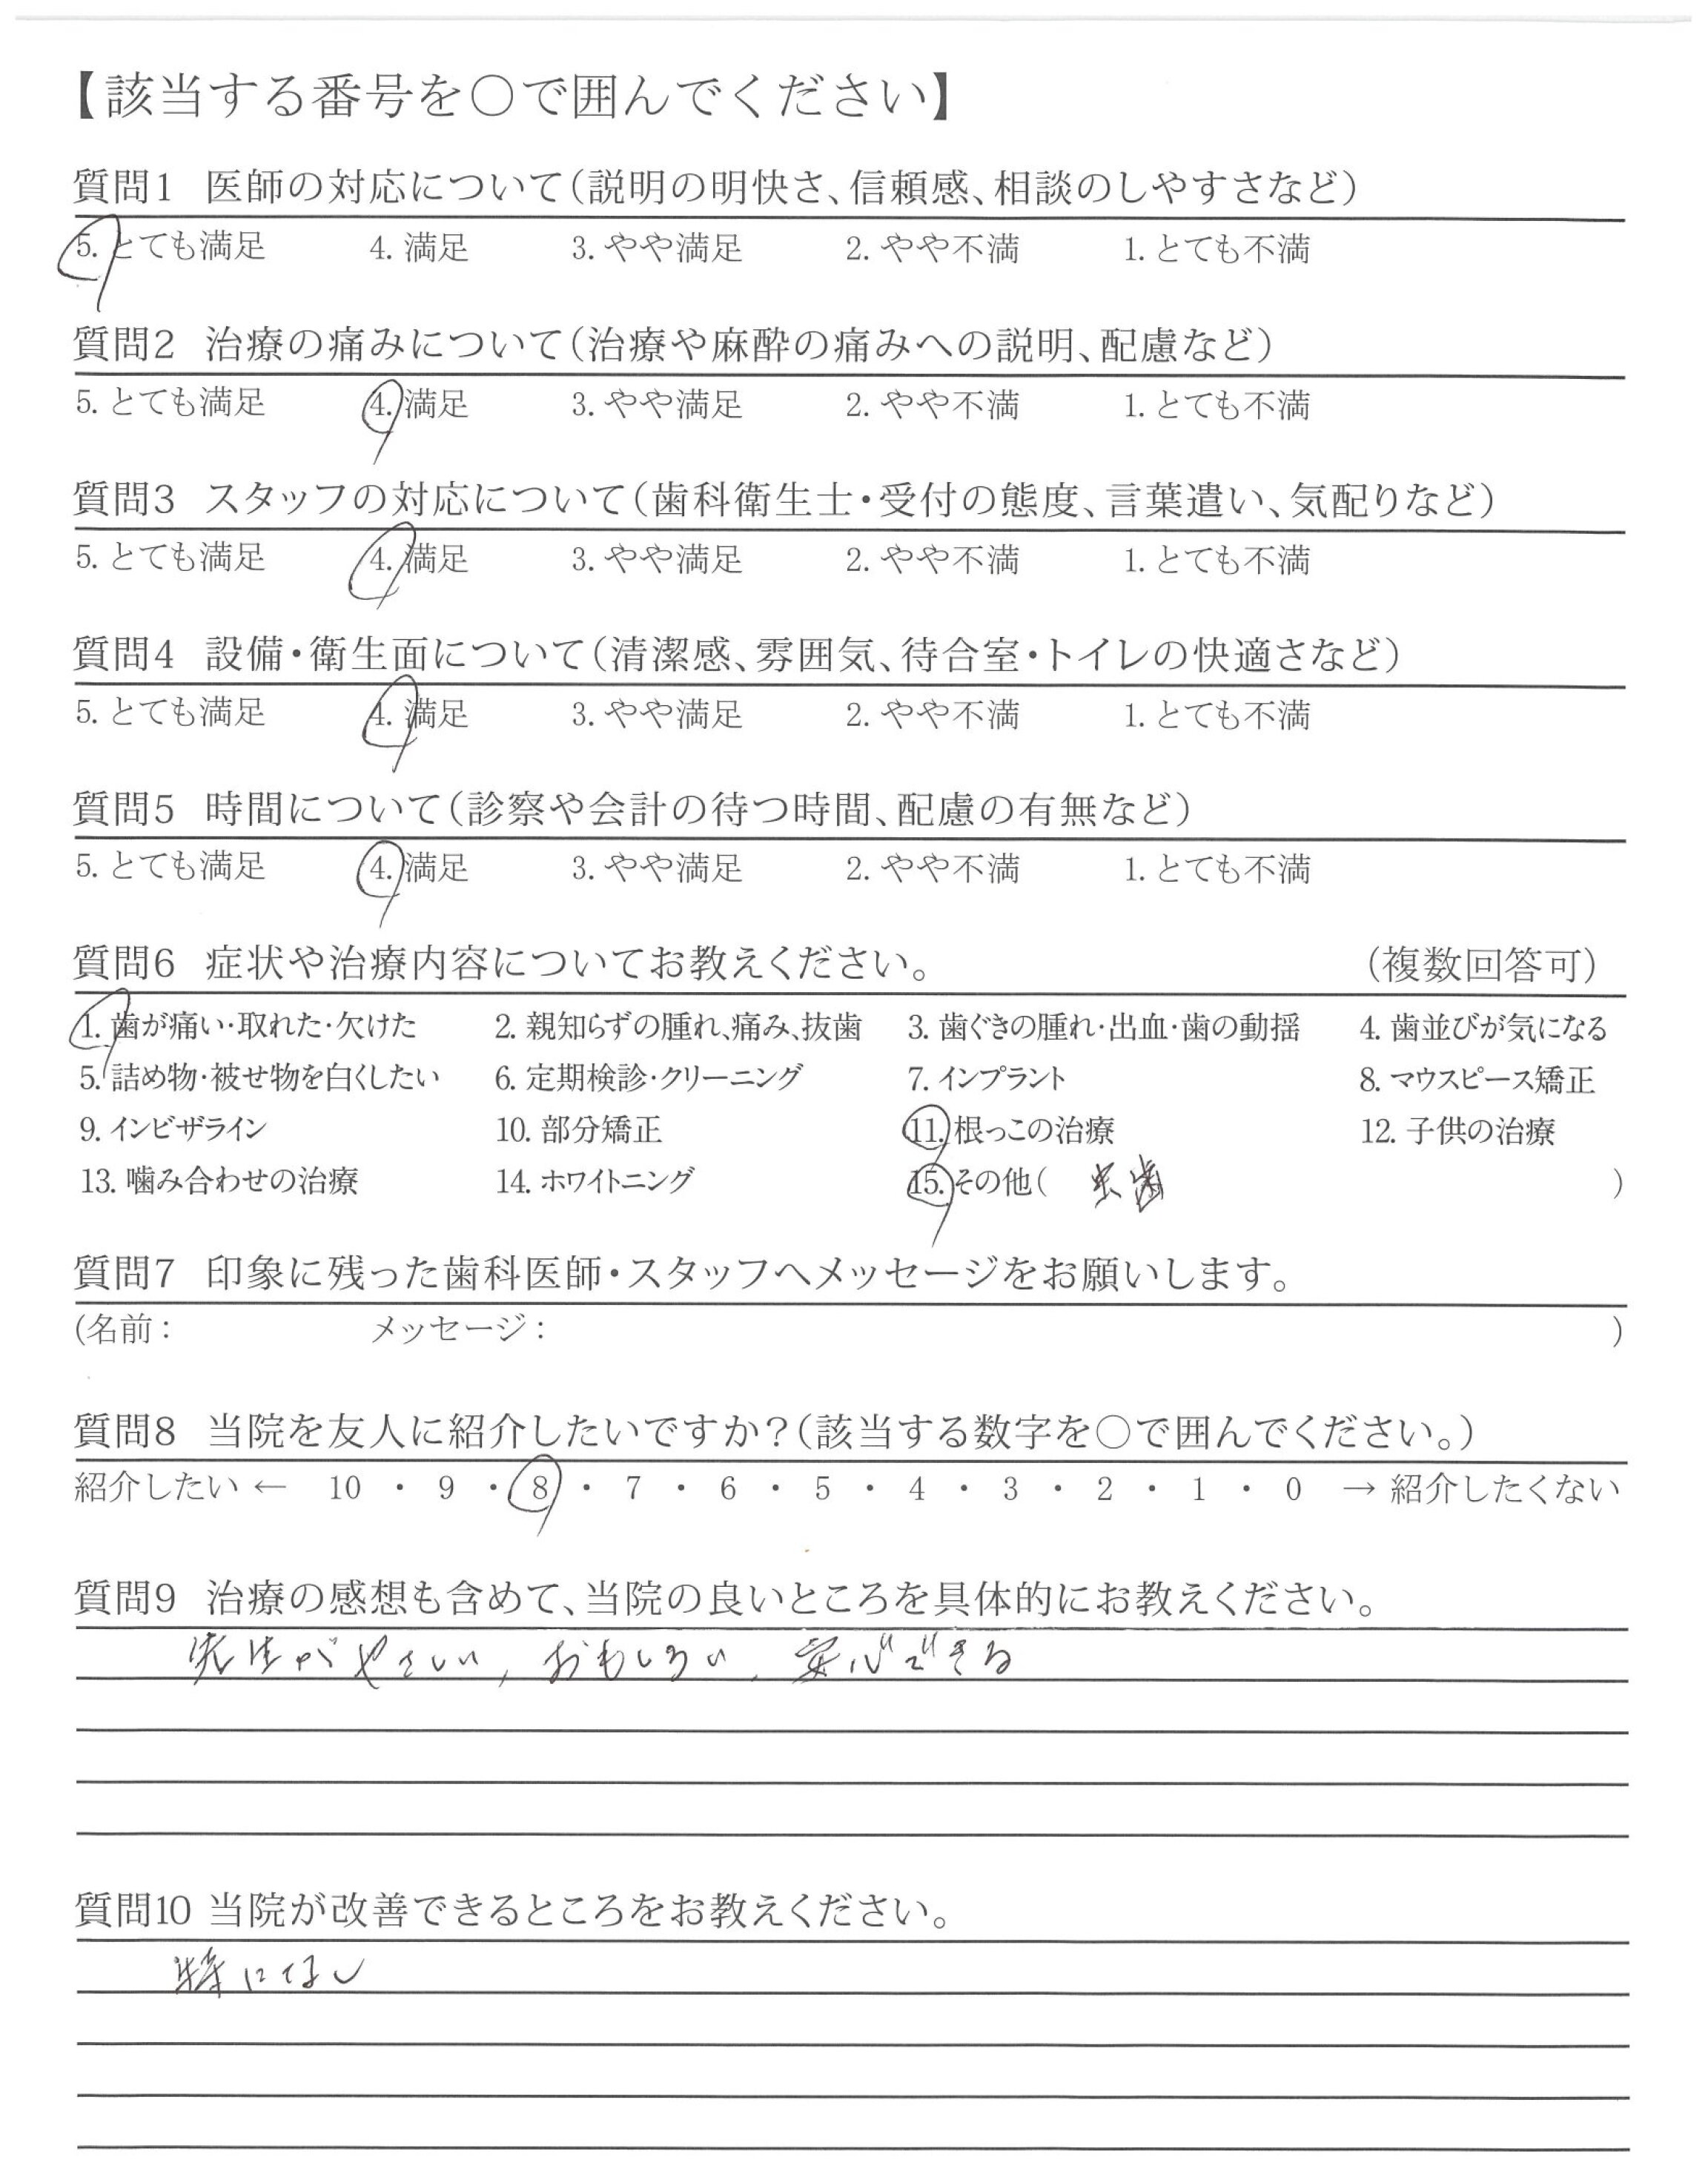 【該当する番号を○で囲んでください】
質問1 医師の対応について(説明の明快さ、信頼感、相談のしやすさなど)
5. とても満足 4. 満足 3. やや満足 2. やや不満 1. とても不満
質問2 治療の痛みについて(治療や麻酔の痛みへの説明、配慮など)
5. とても満足 4. 満足 3. やや満足 2. やや不満 1. とても不満
質問3 スタッフの対応について(歯科衛生士・受付の態度、言葉遣い、気配りなど)
5. とても満足 4. 満足 3. やや満足 2. やや不満 1. とても不満
質問4 設備・衛生面について(清潔感、雰囲気、待合室・トイレの快適さなど)
5. とても満足 4. 満足 3. やや満足 2. やや不満 1. とても不満
質問5 時間について(診察や会計の待つ時間、配慮の有無など)
5. とても満足 4. 満足 3. やや満足 2. やや不満 1. とても不満
質問6 症状や治療内容についてお教えください。 (複数回答可)
1. 歯が痛い・取れた・欠けた 2. 親知らずの腫れ、痛み、抜歯 3. 歯ぐきの腫れ・出血・歯の動揺 4. 歯並びが気になる
5. 詰め物・被せ物を白くしたい 6. 定期検診・クリーニング 7. インプラント 8. マウスピース矯正
9. インビザライン 10. 部分矯正 11. 根っこの治療 12. 子供の治療
13. 噛み合わせの治療 14. ホワイトニング 15. その他( 虫歯 )
質問7 印象に残った歯科医師・スタッフへメッセージをお願いします。
(名前: メッセージ: )
質問8 当院を友人に紹介したいですか?(該当する数字を○で囲んでください。)
紹介したい ← 10 ・ 9 ・ 8 ・ 7 ・ 6 ・ 5 ・ 4 ・ 3 ・ 2 ・ 1 ・ 0 → 紹介したくない
質問9 治療の感想も含めて、当院の良いところを具体的にお教えください。
先生がやさしい、おもしろい、安心できる
質問10 当院が改善できるところをお教えください。
特になし